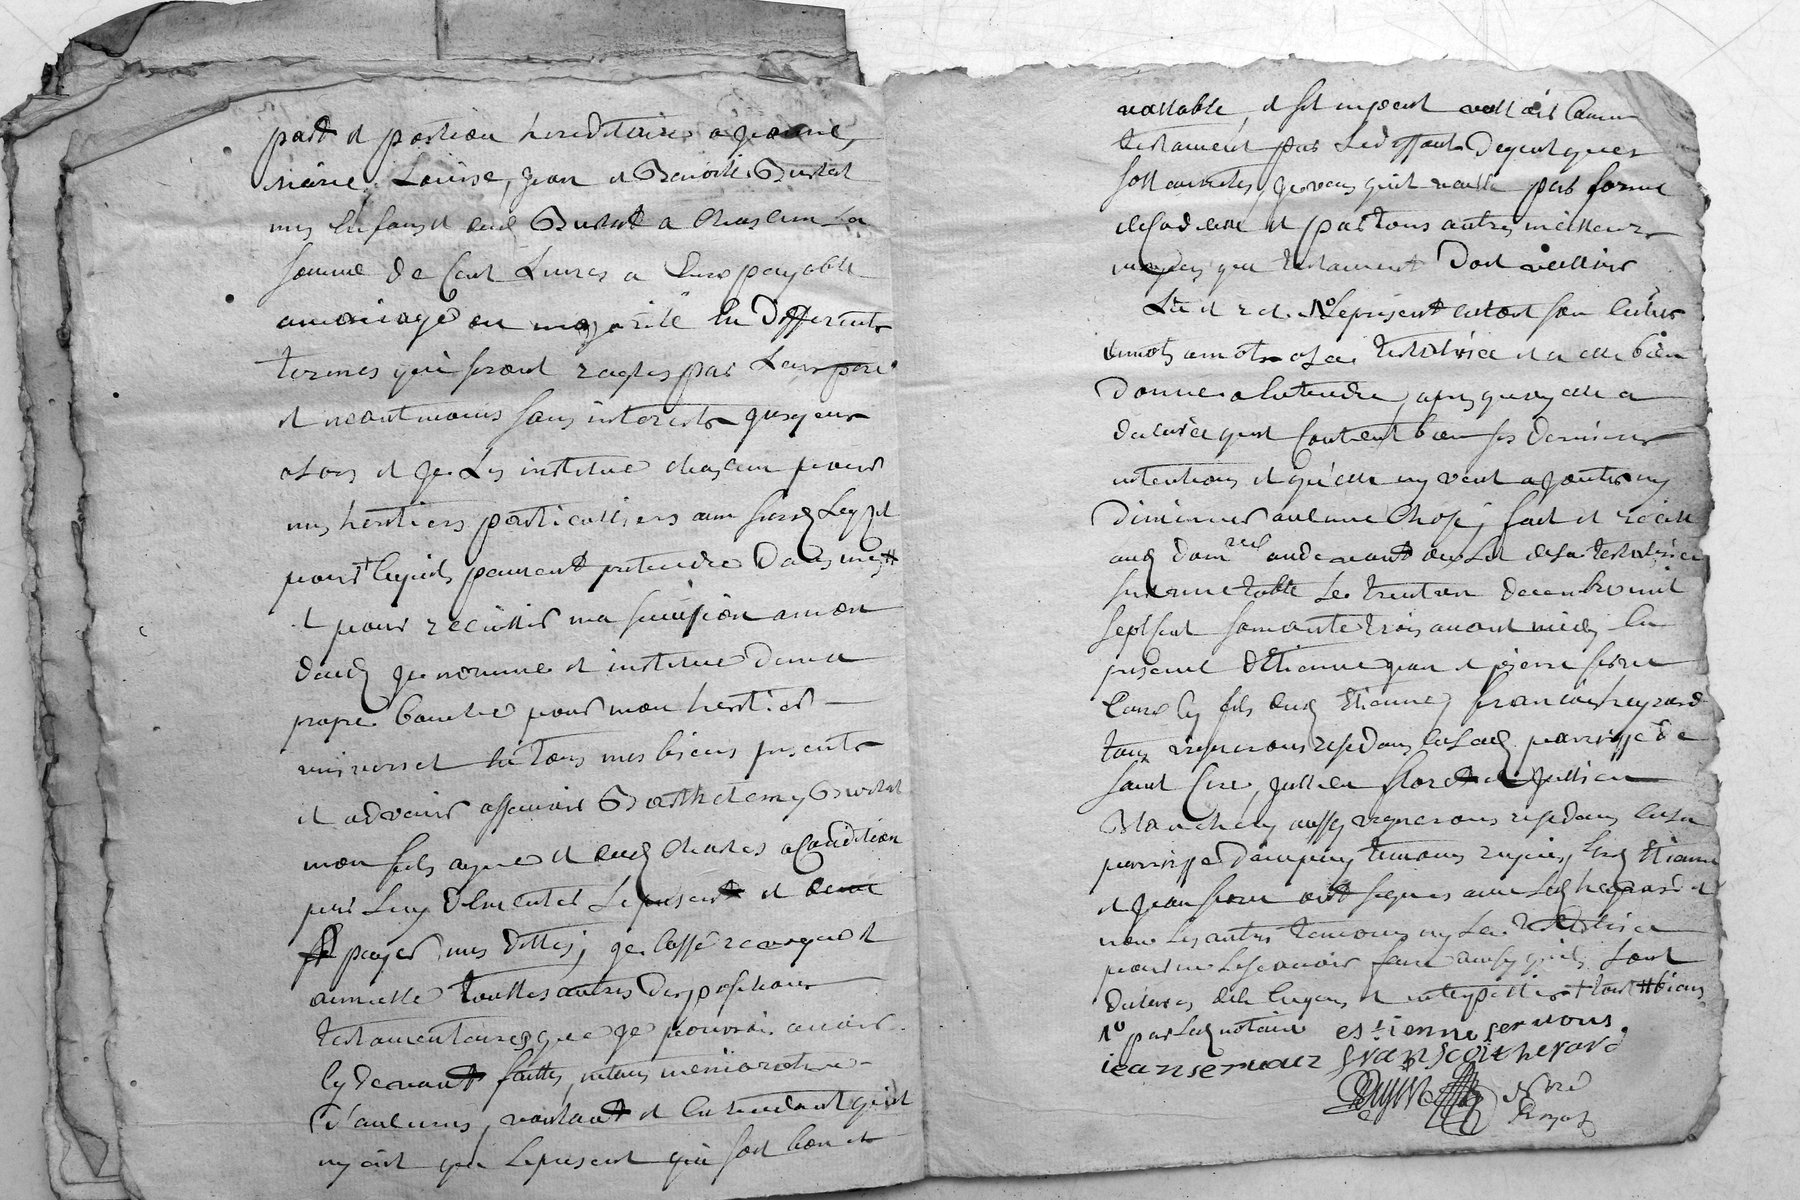 part et portion hereditaire a jeanne,
marie, Louise, jean et Benoite Burlat
mes Enfans et dud Burlat a Chascun La
somme de Cent Livres a Eux payable
a mariage ou majorité En differents
termes qui seront regles par Leur pere
et neantmoins sans interets jusques
alors et je Les institue chascun pour
mes heritiers particulliers aux susd Legs et
pour ce quils peuvent pretendre Dans mes
et pour recüillir ma sucession a mon
deceds je nomme et institue de ma
propre bouche pour mon heritier
universel En tous mes biens presents
et advenir assavoir Barthelemy Burlat
mon fils ayne et dud Charles a Condition
par Luy d'Executer Le present et
payer mes dettes, je Casse revoque et
annulle touttes autres dispositions
testamentaires que je pourrois avoir
Cy devant faittes, n'etant memorative
d'aucunes, voulant et Entendant quil
ny ait que Le present qui soit bon et
vallable, et sil ne peut valloir Comme
testament par Le deffaut de quelques
sollannités, je veux quil vaille par forme
de Codicille et par tous autres meilleurs
moyens que testament Doit valloir
Lu et le present testament son Entier
de mots a mots a La testatrice et a elle bien
donné a Entendre, apres quoy elle a
declaré quil Contient bien ses dernieres
intentions et qu'elle ny veut ajouter ny
diminuer aucune Chose, fait et recité
aud dom au devant du Lit de La testatrice
sur une table Le trente un decembre mil
sept Cent soixante trois avant midy En
presence d'Etienne jean et pierre
fils dud Etienne, françois heyrard
tous vignerons residans En Lad parroisse de
saint Cire, jullien floret et jullien
Blanchery aussy vignerons residans En La
parroisse d'ampuy temoins requis, Lesd Etienne
et jean ont signes avec Led heyrard et
non Les autres temoins ny La testatrice
pour ne Le scavoir faire ainsy quils Lont
declarés de Ce Enquis et interpellés
par Led notaire estienne servous
iean servouz franscois herard